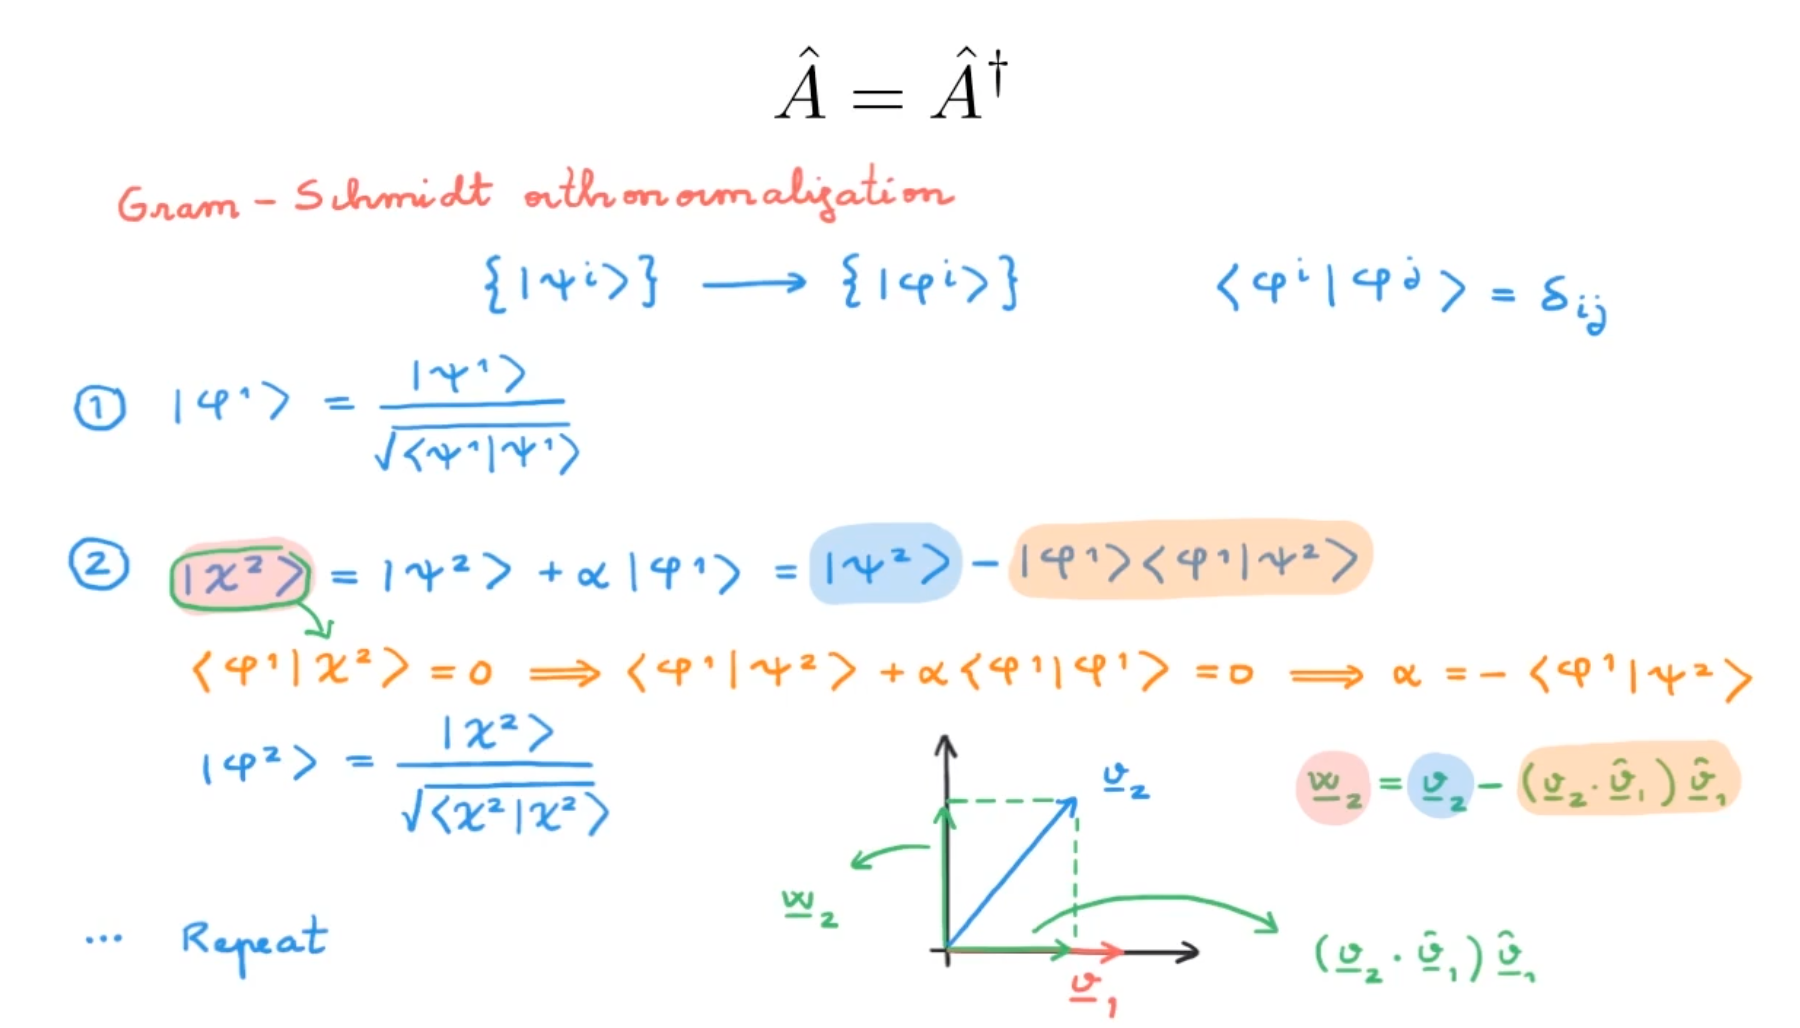 Â = Â†
Gram - Schmidt orthonormalization
{|ψⁱ⟩} ⟶ {|φⁱ⟩} ⟨φⁱ|φʲ⟩ = δᵢⱼ
① |φ¹⟩ = |ψ¹⟩ / √⟨ψ¹|ψ¹⟩
② |χ²⟩ = |ψ²⟩ + α|φ¹⟩ = |ψ²⟩ - |φ¹⟩⟨φ¹|ψ²⟩
⟨φ¹|χ²⟩ = 0 ⟹ ⟨φ¹|ψ²⟩ + α⟨φ¹|φ¹⟩ = 0 ⟹ α = - ⟨φ¹|ψ²⟩
|φ²⟩ = |χ²⟩ / √⟨χ²|χ²⟩
v₂
w₂ = v₂ - (v₂ · v̂₁) v̂₁
w₂
... Repeat
(v₂ · v̂₁) v̂₁
v₁